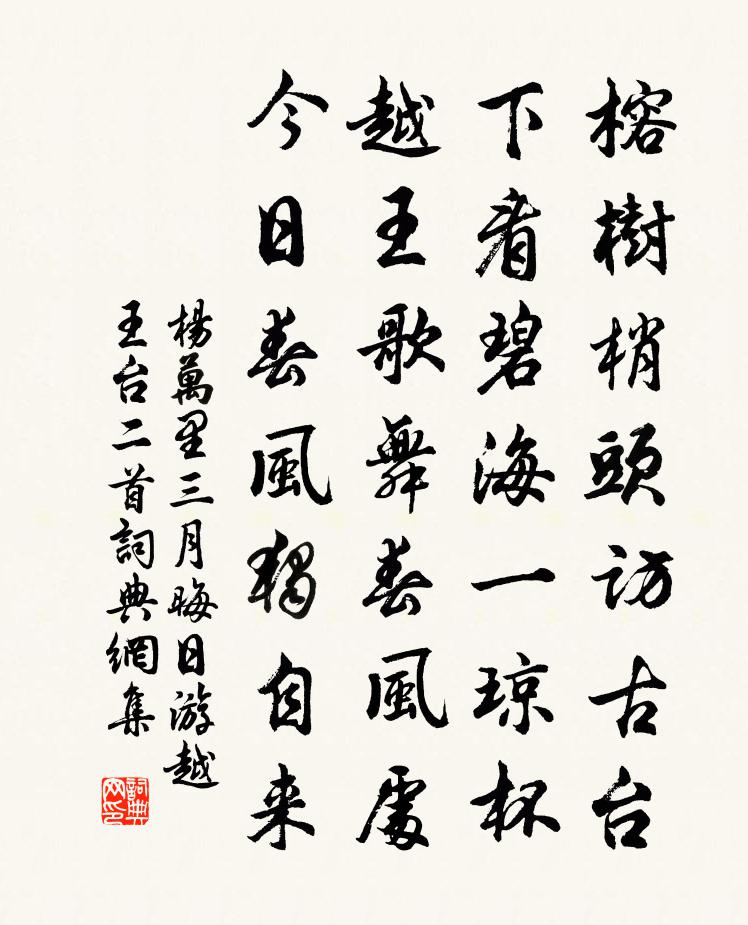 榕樹梢頭訪古台
下看碧海一琼杯
越王歌舞春風處
今日春風獨自来
楊萬里三月晦日游越
王台二首詞典網集
詞典网印